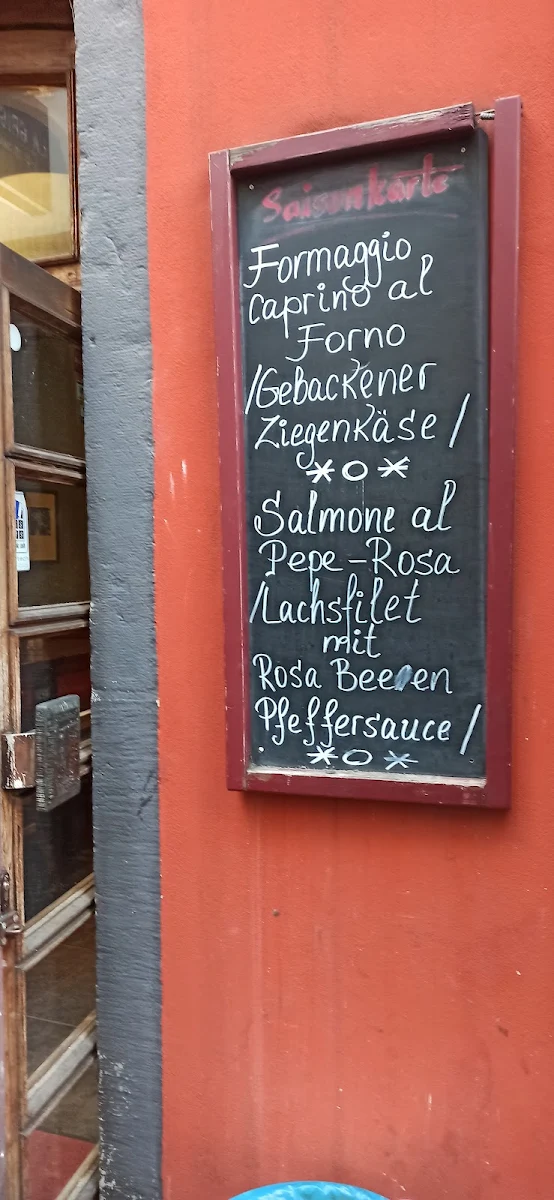 Saisonkarte
Formaggio
Caprino al
Forno
/Gebackener
Ziegenkäse/
*o*
Salmone al
Pepe-Rosa
/Lachsfilet
mit
Rosa Beeren
Pfeffersauce/
*o*